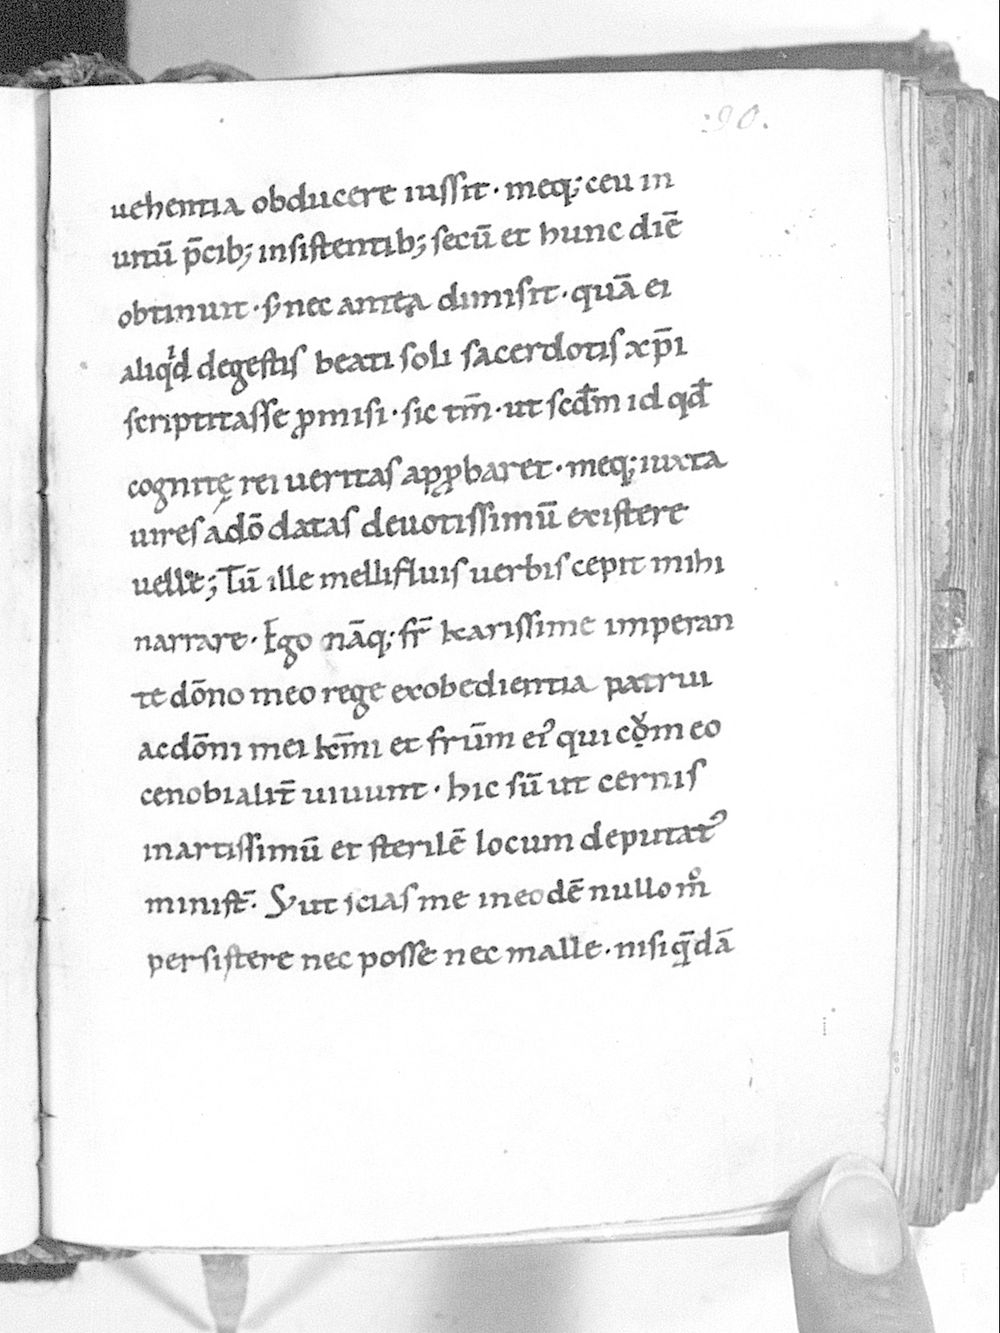 :90.
uehentia obducere iussit · meq; ceu in
untū p̄cib; insistentib; secū et hunc diē
obtinuit · s; nec antęa dimisit · quā ei
aliqͥd degestis beati soli sacerdotis xp̄i
scriptitasse ꝓmisi · sic tm̄ · ut scdm̄ id qđ
cognitę rei ueritas apꝓbaret · meq; iuxta
uires a dō datas deuotissimū existere
uelle; Tū ille mellifluis uerbis cepit mihi
narrare · Ego nāq; fr̄ karissime imperan
te dōno meo rege ex obedientia patrui
ac dōni mei km̄i et frūm ei qui
cenobialit̄ uiuunt · hic sū ut cernis
in artissimū et sterilē locum deputat᷒
minist̄. S; ut scias me in eodē nullo mͦ
persistere nec posse nec malle · nisi q̄dā